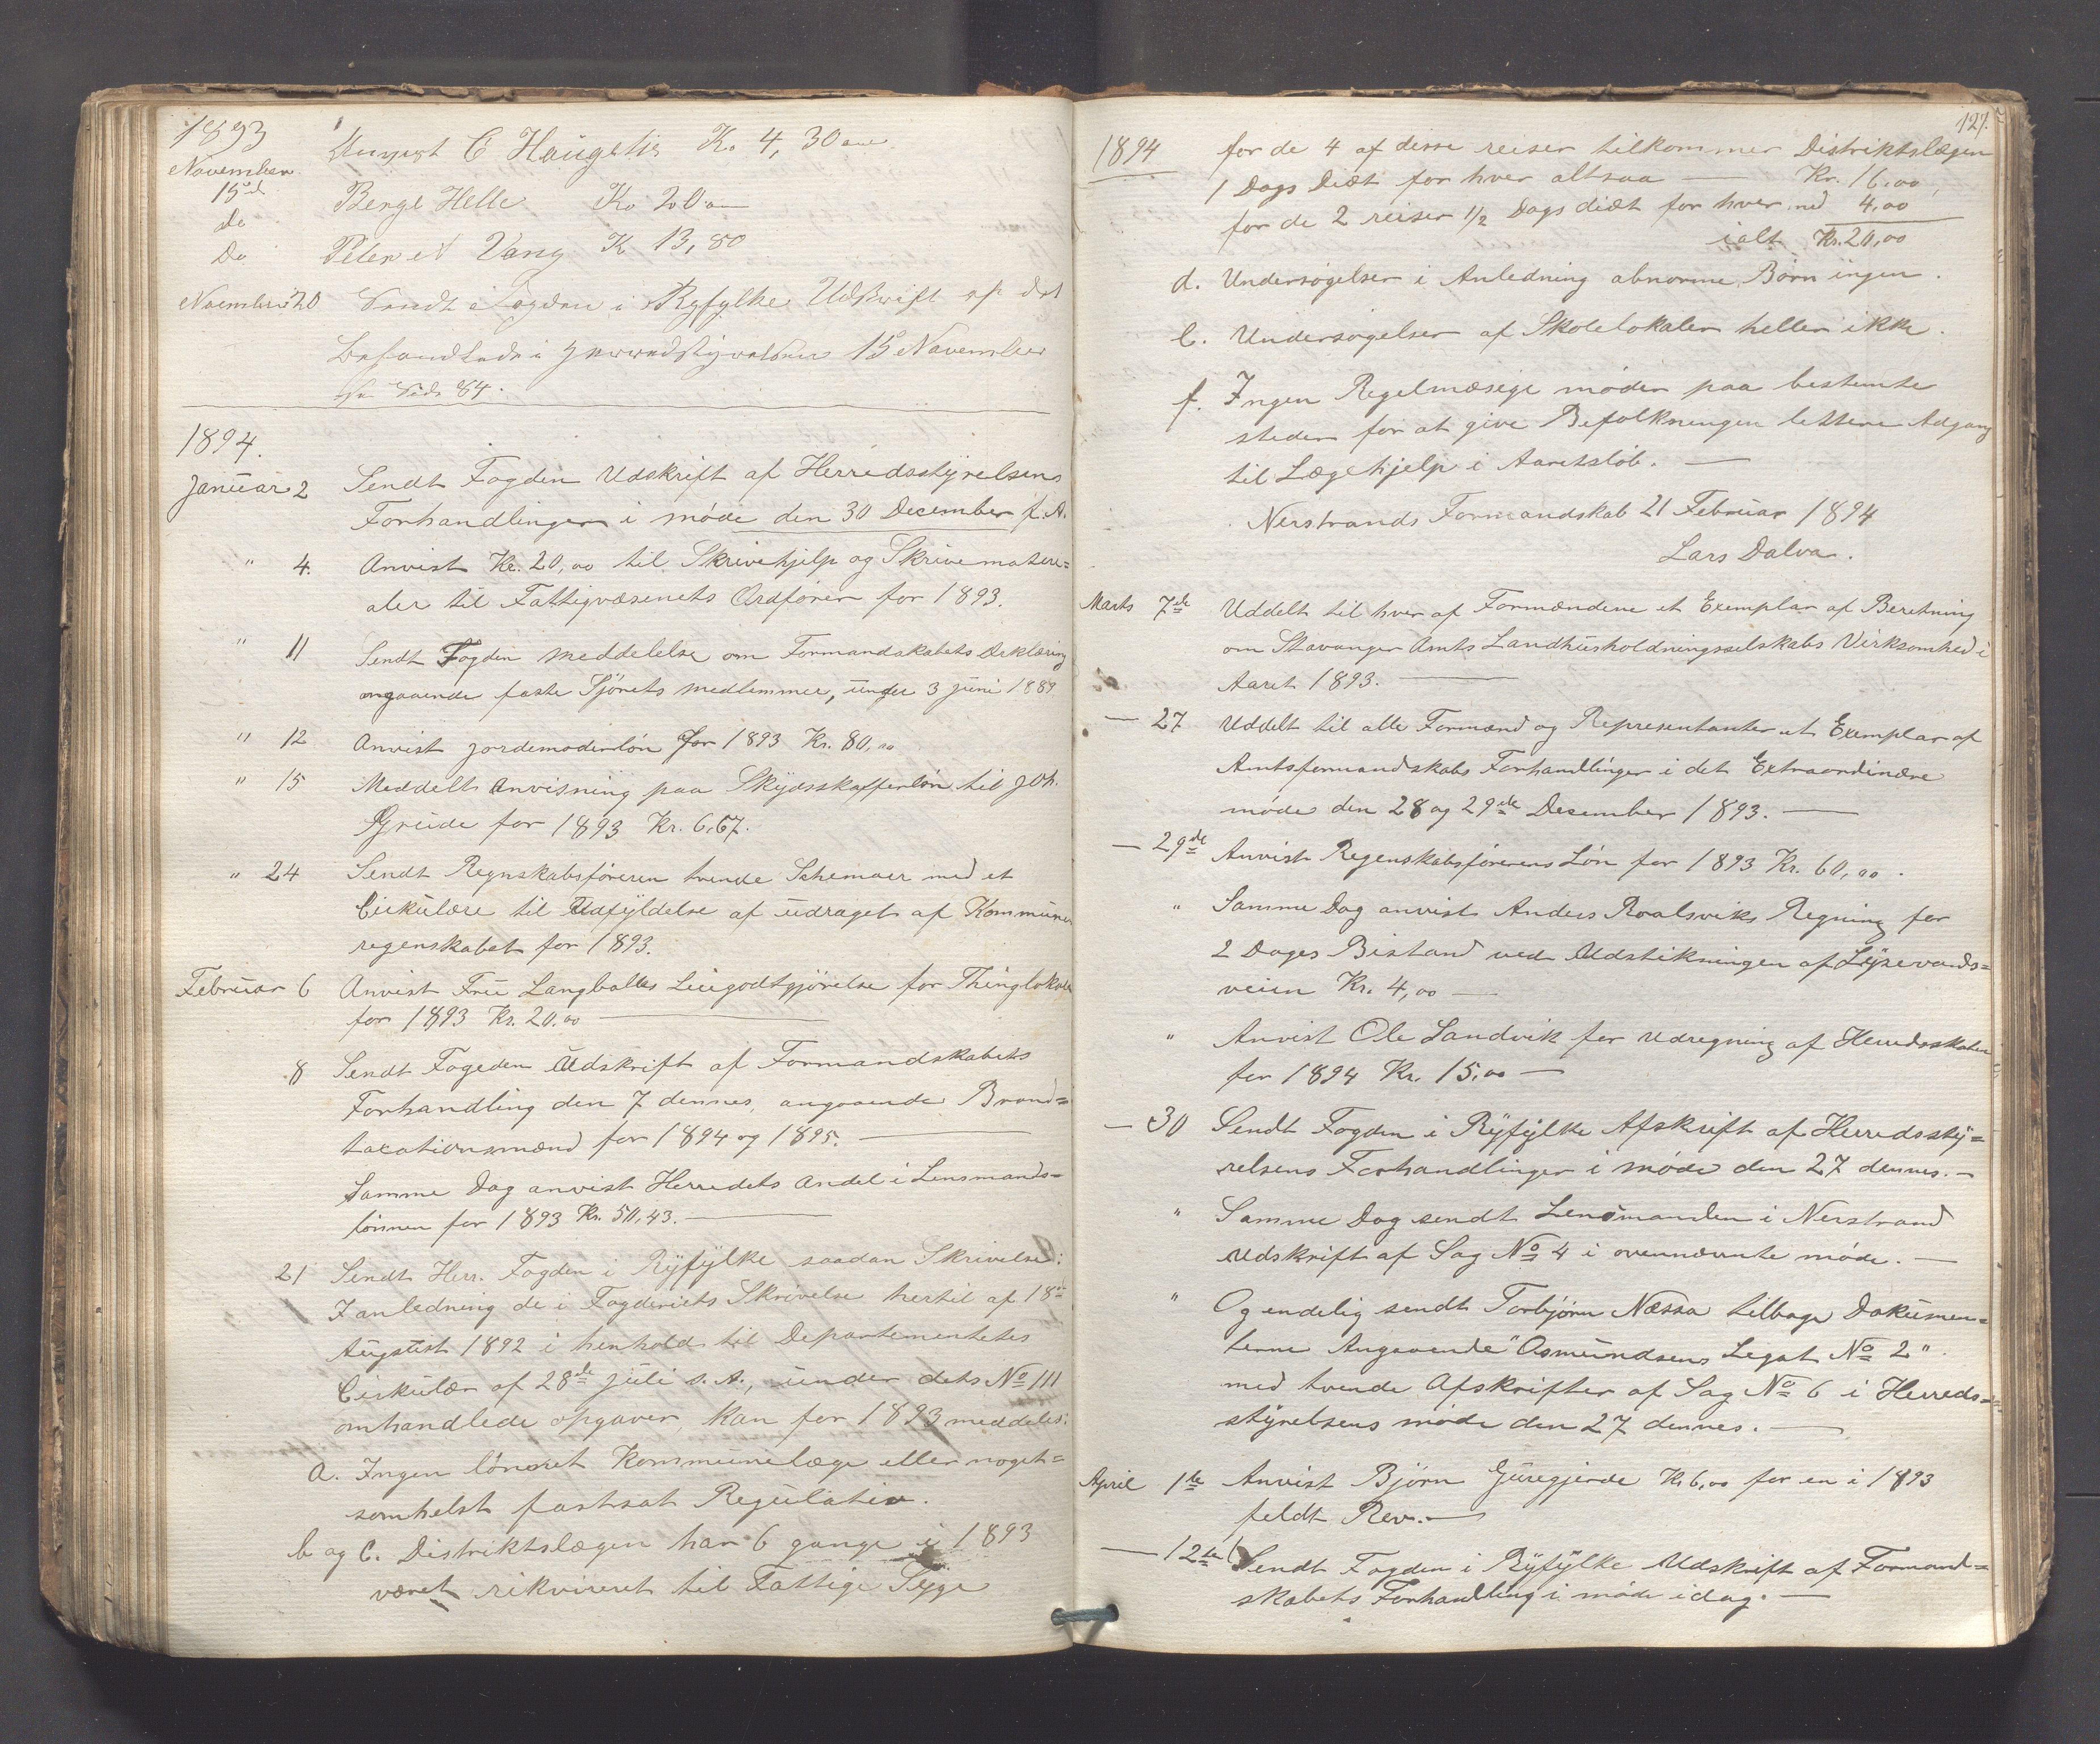 1893
November
15de August C Haugetis K. 4,30 øre
do Berge Helle K. 20
Do Peter Vang K 13,80
November 20 Sendt Fogden i Ryfylke Udskrift af det
behandlede i Herredsstyrelsen 15 November
Side 84.
1894.
Januar 2 Sendt Fogden Udskrift af Herredsstyrelsens
Forhandlinger i møde den 30 December f. A.
" 4. Anvist Kr. 20,00 til Skrivehjelp og Skrivemateri=
aler til Fattigvæsenets Ordfører for 1893.
" 11 Sendt Fogden meddelelse om Formandskabets Deklæring
angaaende faste medlemmer, under 3 juni 1889
" 12 Anvist jordemoderløn for 1893 Kr. 80,00
" 15 Meddelt anvisning paa Skydsskafferløn til Joh.
Grude for 1893 Kr. 6,67.
" 24 Sendt Regnskabsføreren tvende Schemaer med et
Cirkulære til Udfyldelse af udraget af Kommune
regenskabet for 1893.
Februar 6 Anvist Fru Langballes Leiegodtgjørelse for Thinglokale
for 1893 Kr. 20.00 —
8 Sendt Fogeden Udskrift af Formandskabets
Forhandling den 7 dennes, angaaende Brand=
taxationsmænd for 1894 og 1895. —
Samme Dag anvist Herredets andel i Lensmands=
lønnen for 1893 Kr. 50,43. —
21 Sendt Herr. Fogden i Ryfylke saadan Skrivelse:
I anledning de i Fogderiets Skrivelse hertil af 18de
August 1892 i henhold til Departementets
Cirkulær af 28de juli s. A., under dets No 111
omhandlede opgaver, kan for 1893 meddeles:
a. Ingen lønnet Kommunelæge eller noget=
somhelst fastsat Regulativ.
b og c. Distriktslægen har 6 gange i 1893
været rikvireret til Fattige Syge
127.
1894 for de 4 af disse reiser tilkommer Distriktslægen
1 Dags Diæt for hver altsaa — Kr. 16,00,
for de 2 reiser 1/2 Dags diæt for hver med 4,00
ialt Kr. 20,00
d. Undersøgelser i Anledning abnorme Børn ingen.
e. Undersøgelser af Skolelokaler heller ikke.
f. Ingen Regelmæsige møder paa bestemte
steder for at give Befolkningen lettere Adgang
til Lægehjelp i Aaretsløb. —
Nerstrands Formandskab 21 Februar 1894
Lars Dalva.
Marts 7de Uddelt til hver af Formændene et Exemplar af Beretning
om Stavanger Amts Landhusholdningsselskabs Virksomhed i
Aaret 1893. —
— 27 Uddelt til alle Formænd og Representanter et Exemplar af
Amtsformandskabs Forhandlinger i det Extraordinære
møde den 28 og 29de Desember 1893. —
— 29de Anvist Regenskabsførerens Løn for 1893 Kr. 60,00.
" Samme Dag anvist Anders Roalsviks Regning for
2 Dages Bistand ved Udstikningen af Lysevands=
veien Kr. 4,00 —
" Anvist Ole Sandvik for udregning af Herredsskaten
for 1894 Kr. 15,00 —
— 30 Sendt Fogden i Ryfylke Afskrift af Herredssty=
relsens Forhandlinger i møde den 27 dennes. —
" Samme Dag sendt Lensmanden i Nerstrand
Udskrift af Sag No 4 i ovennævnte møde. —
" Og endelig sendt Torbjørn Næssa tilbage Dokumen=
terne Angaaende "Asmundsens Legat No 2"
med tvende Afskrifter af Sag No 6 i Herreds=
styrelsens møde den 27 dennes. —
April 1te Anvist Bjørn Guregjerde Kr 6,00 for en i 1893
feldt Rev. —
— 12te Sendt Fogden i Ryfylke Udskrift af Formand=
skabets Forhandling i møde idag. —